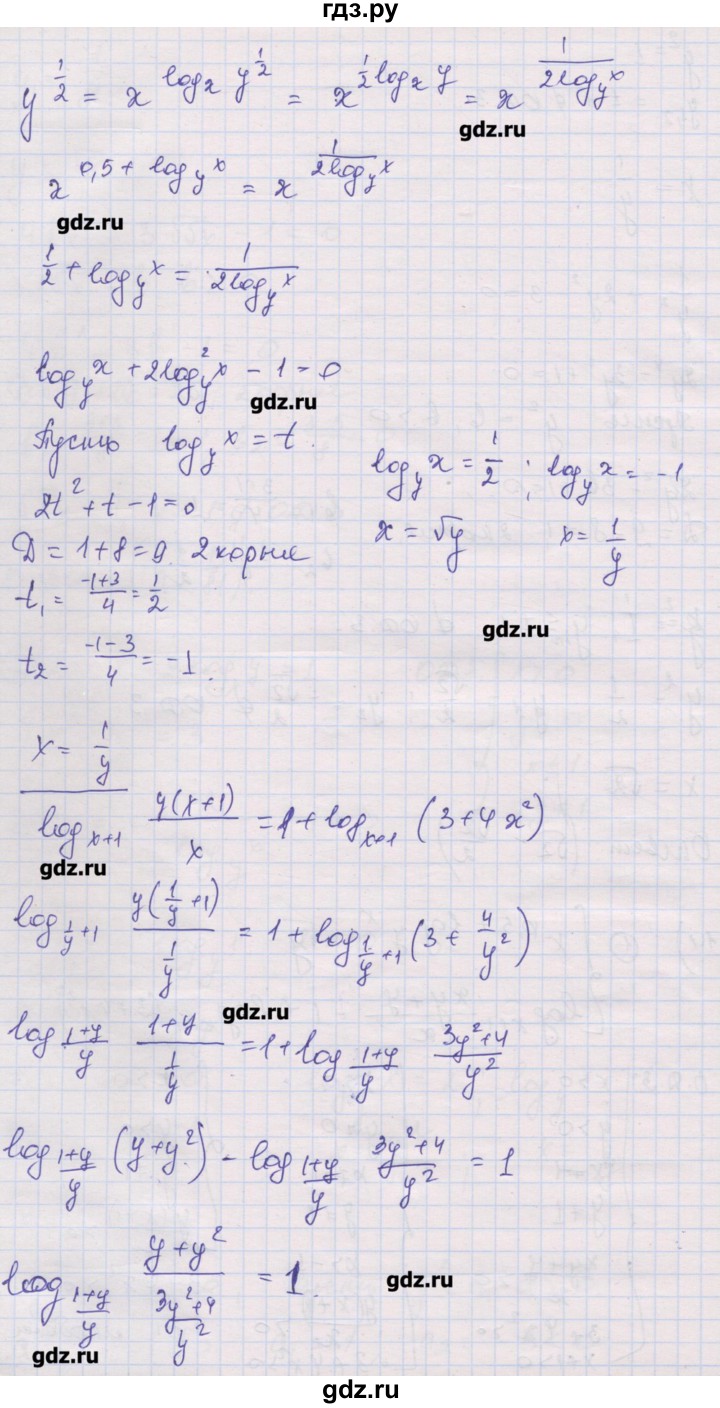 гдз.ру
y^{1/2} = x^{log_x y^{1/2}} = x^{1/2 log_x y} = x^{1/(2log_y x)}
gdz.ru
x^{0,5 + log_y x} = x^{1/(2log_y x)}
gdz.ru
1/2 + log_y x = 1/(2log_y x)
log_y x + 2log²_y x - 1 = 0
gdz.ru
Пусть log_y x = t.
log_y x = 1/2 ; log_y x = -1
2t² + t - 1 = 0
x = √y x = 1/y
D = 1 + 8 = 9. 2 корня
t₁ = (-1+3)/4 = 1/2
gdz.ru
t₂ = (-1-3)/4 = -1.
x = 1/y
log_{x+1} y(x+1)/x = 1 + log_{x+1} (3 + 4x²)
gdz.ru
log_{1/y+1} y(1/y + 1)/(1/y) = 1 + log_{1/y+1} (3 + 4/y²)
gdz.ru
log_{(1+y)/y} (1+y)/(1/y) = 1 + log_{(1+y)/y} (3y²+4)/y²
log_{(1+y)/y} (y+y²) - log_{(1+y)/y} (3y²+4)/y² = 1
log_{(1+y)/y} (y+y²)/((3y²+4)/y²) = 1.
gdz.ru
gdz.ru
gdz.ru